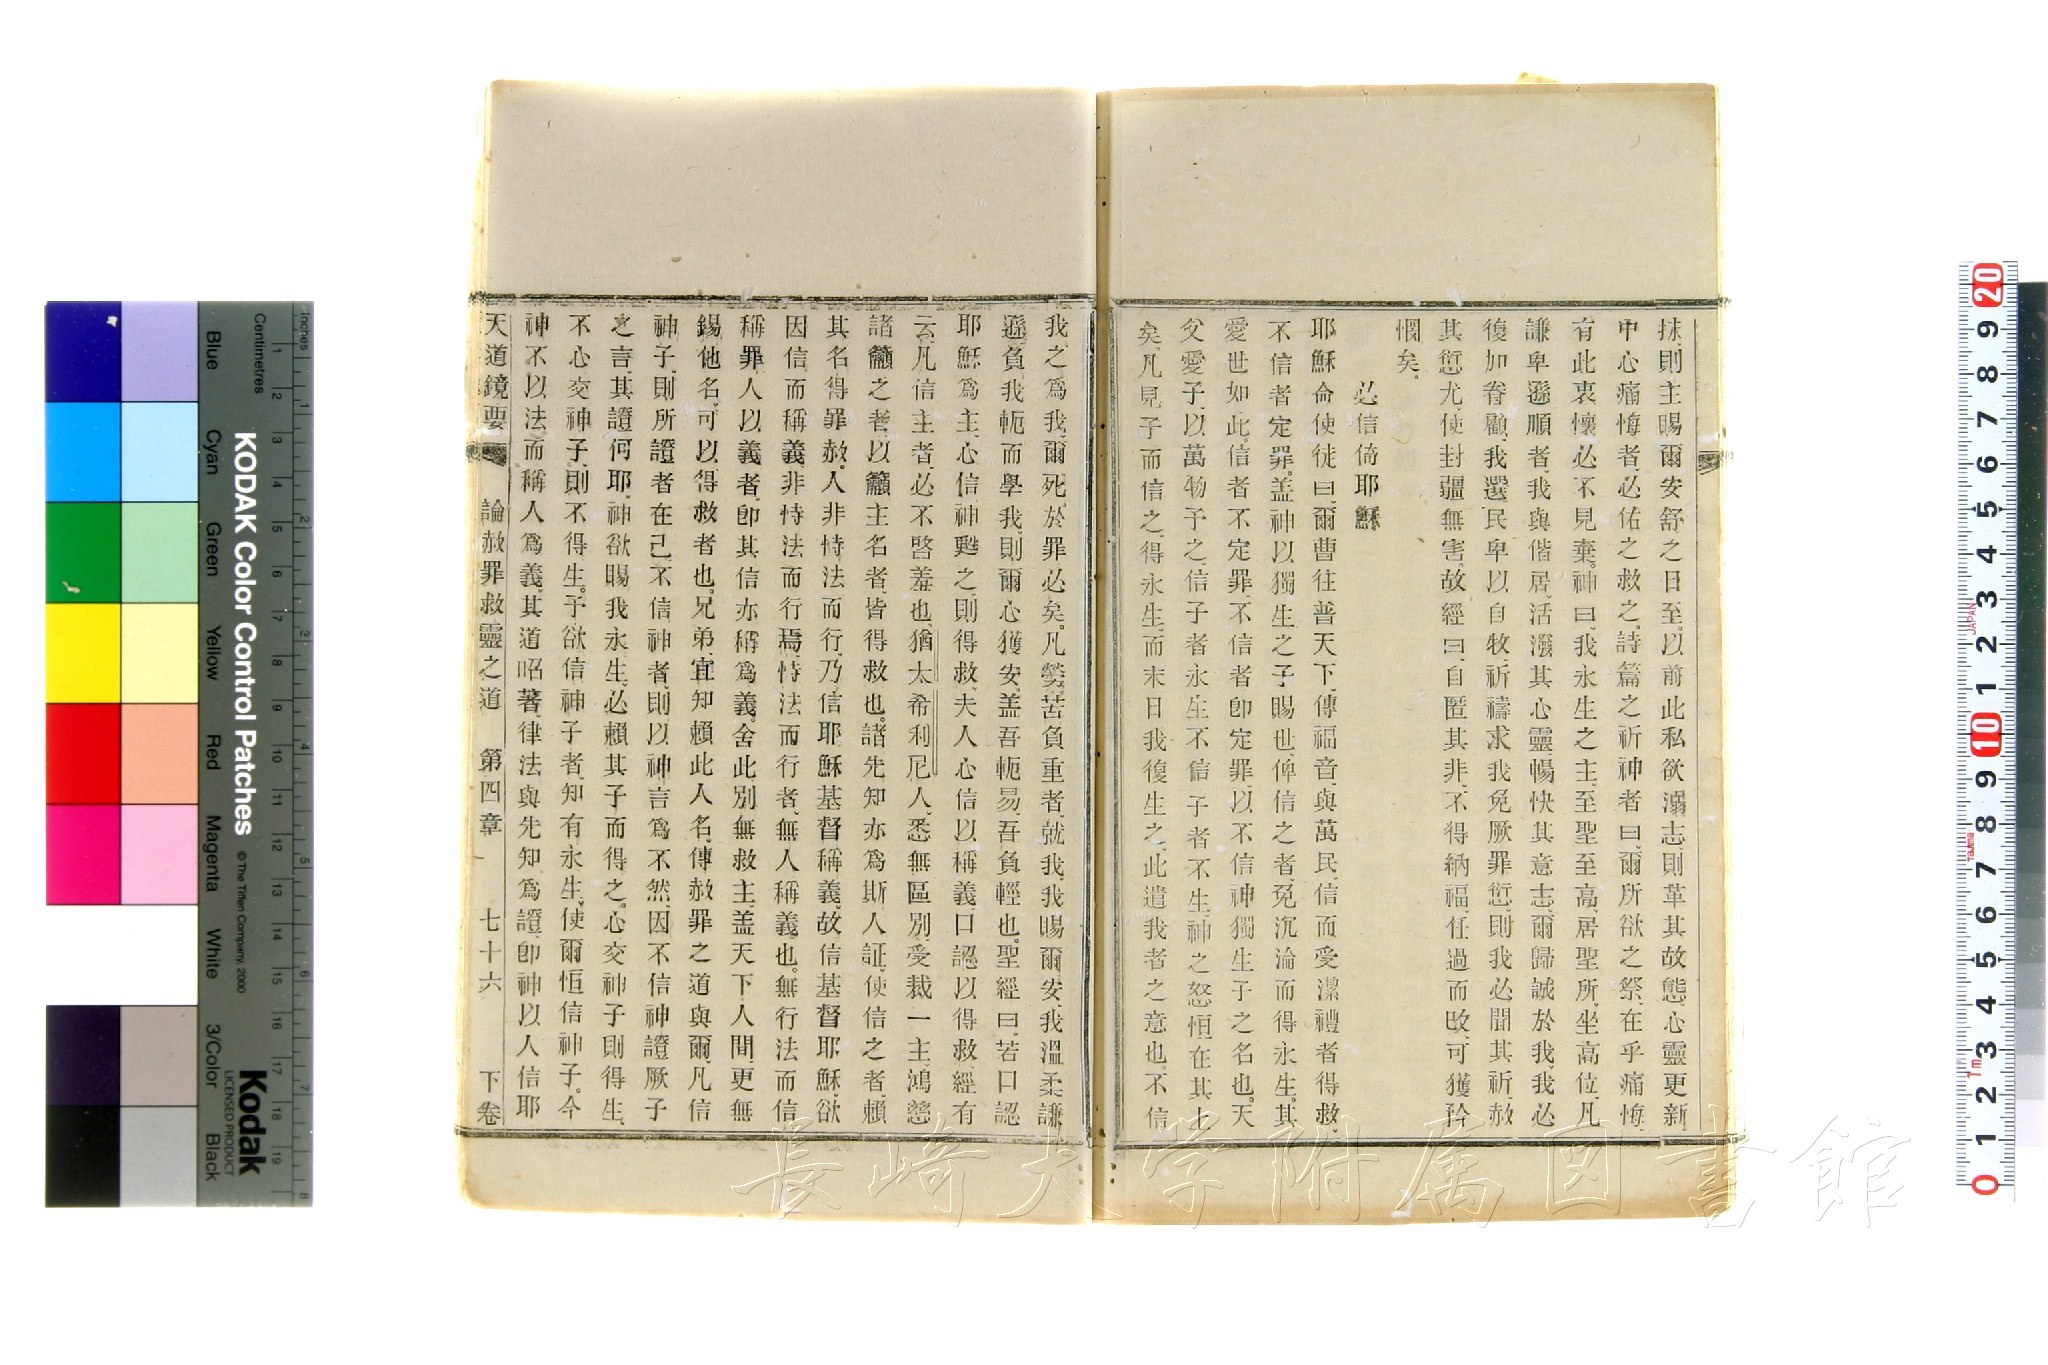 抹、則主賜爾安舒之日至。以前此私欲溺志、則革其故態、心靈更新
中心痛悔者、必佑之救之。詩篇之祈神者曰、爾所欲之祭、在乎痛悔、
有此衷懷、必不見棄。神曰、我永生之主、至聖至高、居聖所、坐高位、凡
謙卑遜順者、我與偕居、活潑其心靈、暢快其意志、爾歸誠於我、我必
復加眷顧、我選民卑以自牧、祈禱求我免厥罪愆、則我必聞其祈、赦
其愆尤、使封疆無害、故經曰、自匿其非、不得納福、任過而改、可獲矜
憫矣。
必信倚耶穌
耶穌命使徒曰、爾曹往普天下、傳福音、與萬民、信而受潔禮者得救、
不信者定罪。盖神以獨生之子賜世、俾信之者、免沉淪而得永生。其
愛世如此。信者不定罪、不信者卽定罪、以不信神獨生子之名也。天
父愛子、以萬物予之、信子者永生、不信子者不生、神之怒恒在其上
矣。凡見子而信之、得永生、而末日我復生之、此遣我者之意也。不信
我之爲我、爾死於罪必矣。凡勞苦負重者、就我、我賜爾安、我溫柔謙
遜、負我軛而學我、則爾心獲安、盖吾軛易、吾負輕也。聖經曰、若口認
耶穌爲主、心信神甦之、則得救、夫人心信以稱義、口認以得救、經有
云、凡信主者、必不啓羞也、猶太希利尼人、悉無區別、受裁一主、鴻慈
諸籲之者、以籲主名者、皆得救也。諸先知亦爲斯人証、使信之者、賴
其名得罪赦。人非恃法而行、乃信耶穌基督稱義、故信基督耶穌、欲
因信而稱義、非恃法而行焉、恃法而行者、無人稱義也。無行法而信
稱罪人以義者、卽其信亦稱爲義。舍此別無救主、盖天下人間、更無
錫他名、可以得救者也。兄弟、宜知賴此人名、傳赦罪之道與爾、凡信
神子、則所證者在己、不信神者、則以神言爲不然、因不信神證厥子
之言、其證何耶、神欲賜我永生、必賴其子而得之。心交神子則得生、
不心交神子、則不得生。予欲信神子者、知有永生、使爾恒信神子。今
神不以法而稱人爲義、其道昭著、律法與先知爲證、卽神以人信耶
天道鏡要 論赦罪救靈之道 第四章 七十六 下卷
Inches
Centimetres
KODAK Color Control Patches
© The Tiffen Company, 2000
Blue Cyan Green Yellow Red Magenta White 3/Color Black
Kodak
LICENSED PRODUCT
長崎大学附属図書館